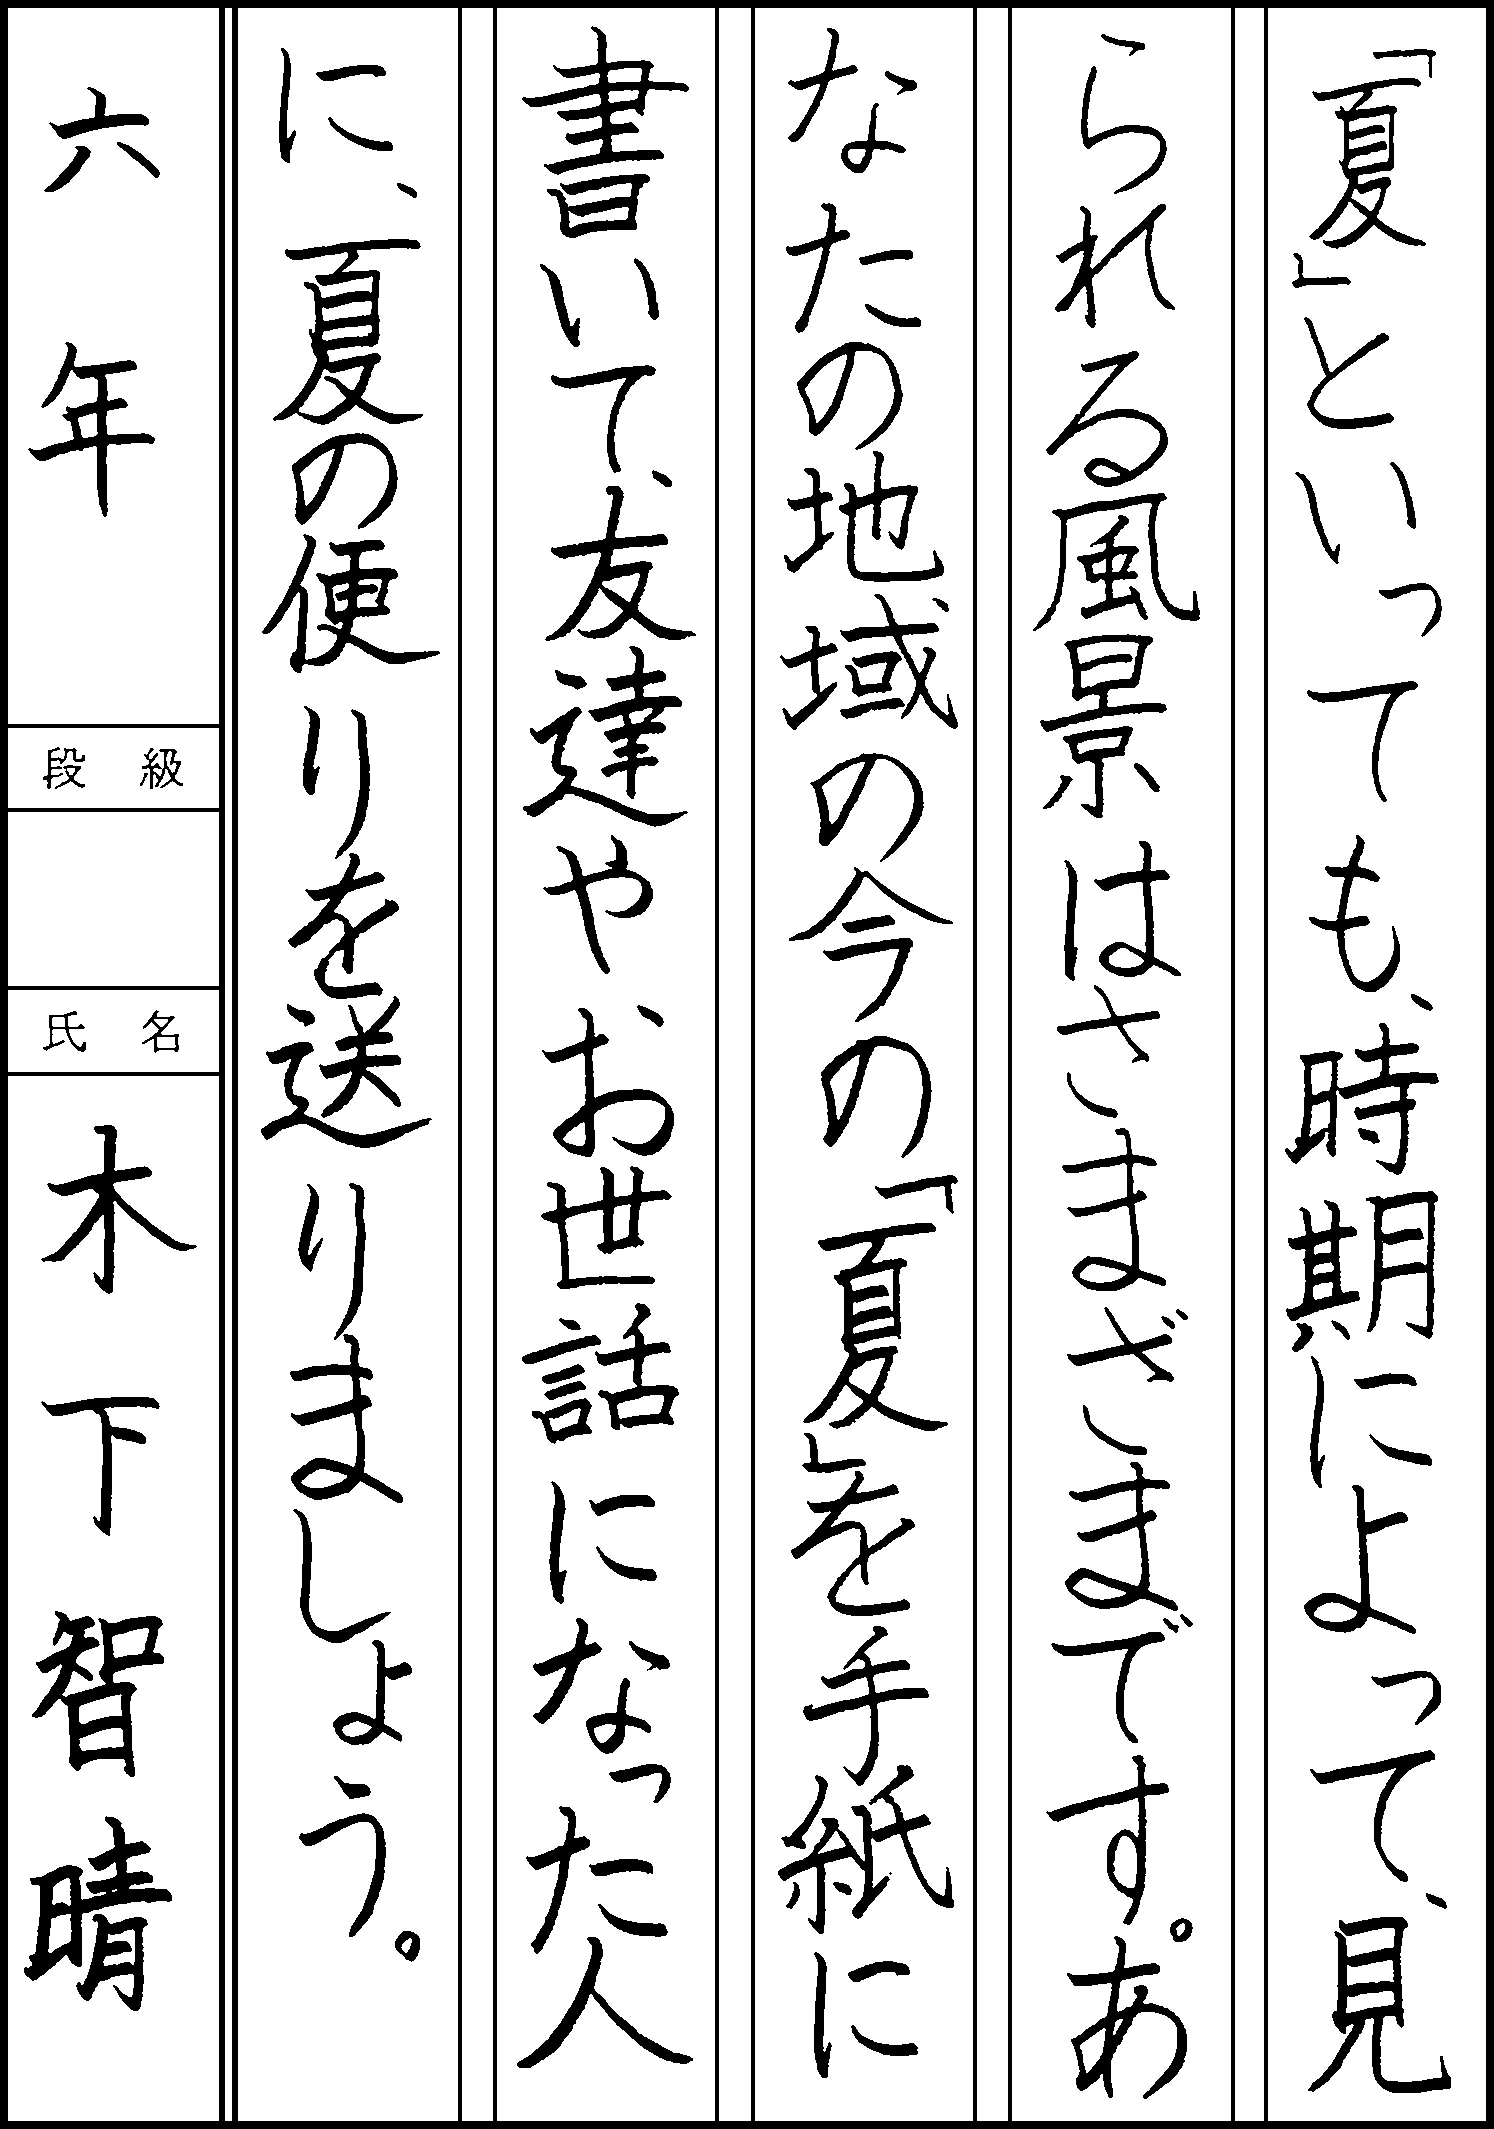 「夏」といっても、時期によって、見
られる風景はさまざまです。あ
なたの地域の今の「夏」を手紙に
書いて、友達やお世話になった人
に、夏の便りを送りましょう。
六年
段級
氏名
木下智晴